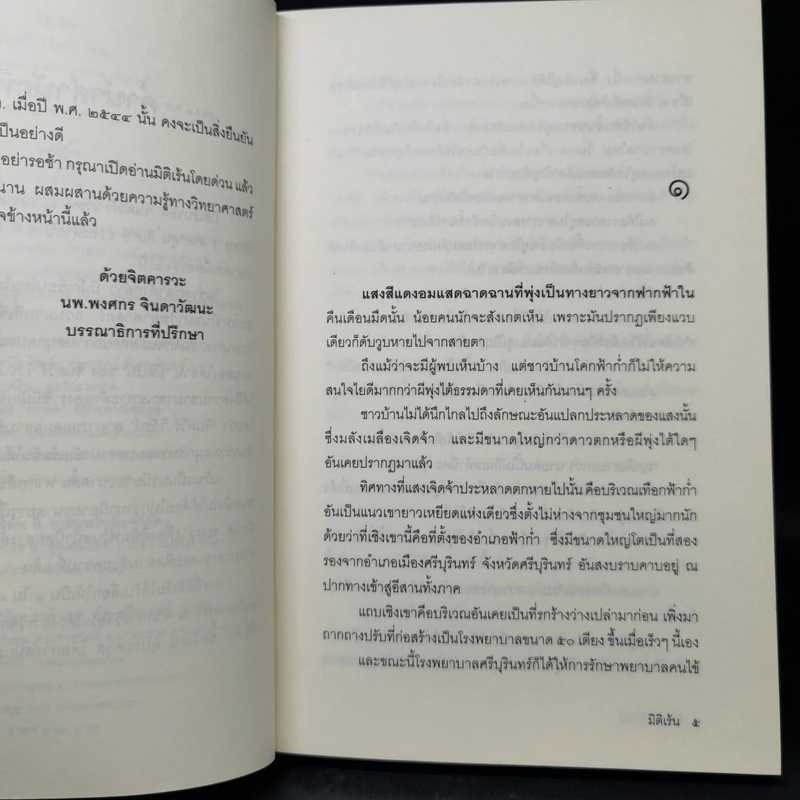 . เมื่อปี พ.ศ. ๒๕๔๔ นั้น คงจะเป็นสิ่งยืนยัน
เป็นอย่างดี
อย่ารอช้า กรุณาเปิดอ่านมิติเร้นโดยด่วน แล้ว
นาน ผสมผสานด้วยความรู้ทางวิทยาศาสตร์
ข้างหน้านี้แล้ว
ด้วยจิตคารวะ
นพ.พงศกร จินดาวัฒนะ
บรรณาธิการที่ปรึกษา
๑
แสงสีแดงอมแสดฉาดฉานที่พุ่งเป็นทางยาวจากฟากฟ้าใน
คืนเดือนมืดนั้น น้อยคนนักจะสังเกตเห็น เพราะมันปรากฏเพียงแวบ
เดียวก็ดับวูบหายไปจากสายตา
ถึงแม้ว่าจะมีผู้พบเห็นบ้าง แต่ชาวบ้านโคกฟ้าก่ำก็ไม่ให้ความ
สนใจไยดีมากกว่าผีพุ่งไต้ธรรมดาที่เคยเห็นกันนานๆ ครั้ง
ชาวบ้านไม่ได้นึกไกลไปถึงลักษณะอันแปลกประหลาดของแสงนั้น
ซึ่งมลังเมลืองเจิดจ้า และมีขนาดใหญ่กว่าดาวตกหรือผีพุ่งไต้ใดๆ
อันเคยปรากฏมาแล้ว
ทิศทางที่แสงเจิดจ้าประหลาดตกหายไปนั้น คือบริเวณเทือกฟ้าก่ำ
อันเป็นแนวเขายาวเหยียดแห่งเดียวซึ่งตั้งไม่ห่างจากชุมชนใหญ่มากนัก
ด้วยว่าที่เชิงเขานี้คือที่ตั้งของอำเภอฟ้าก่ำ ซึ่งมีขนาดใหญ่โตเป็นที่สอง
รองจากอำเภอเมืองศรีบุรินทร์ จังหวัดศรีบุรินทร์ อันสงบราบคาบอยู่ ณ
ปากทางเข้าสู่อีสานทั้งภาค
แถบเชิงเขาคือบริเวณอันเคยเป็นที่รกร้างว่างเปล่ามาก่อน เพิ่งมา
ถากถางปรับที่ก่อสร้างเป็นโรงพยาบาลขนาด ๕๐ เตียง ขึ้นเมื่อเร็วๆ นี้เอง
และขณะนี้โรงพยาบาลศรีบุรินทร์ก็ได้ให้การรักษาพยาบาลคนไข้
มิติเร้น ๕